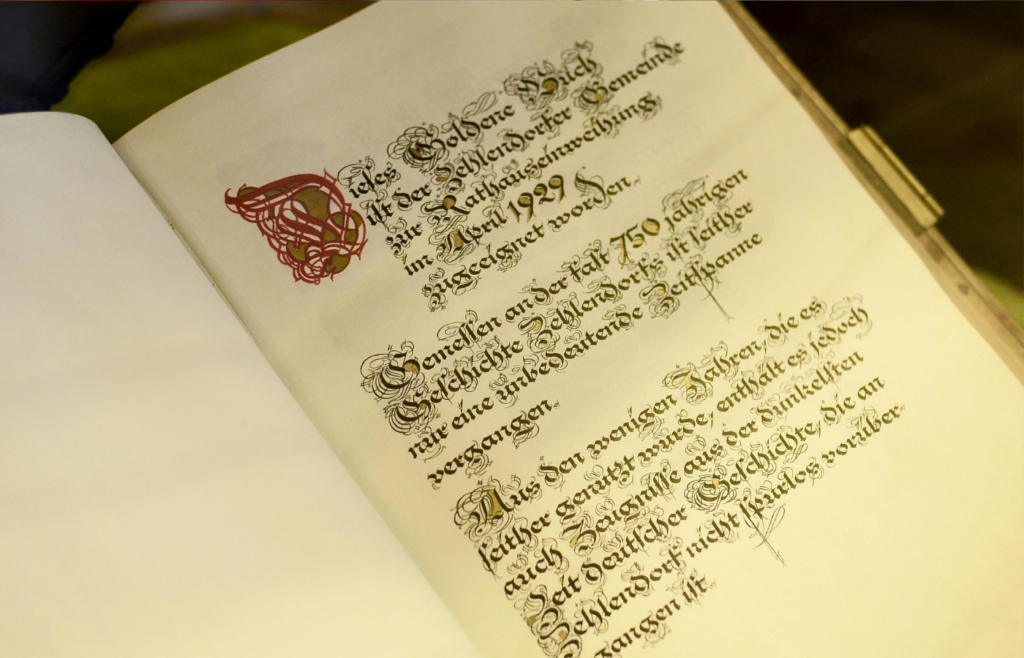 Dieses Goldene Buch
ist der Zehlendorfer Gemeinde
zur Rathauseinweihung
im April 1929
zugeeignet worden.
Gemessen an der fast 750 jährigen
Geschichte Zehlendorfs ist seither
nur eine unbedeutende Zeitspanne
vergangen.
Aus den wenigen Jahren, die es
seither genutzt wurde, enthält es jedoch
auch Zeugnisse aus der dunkelsten
Zeit deutscher Geschichte, die an
Zehlendorf nicht spurlos vorüber-
gangen ist.